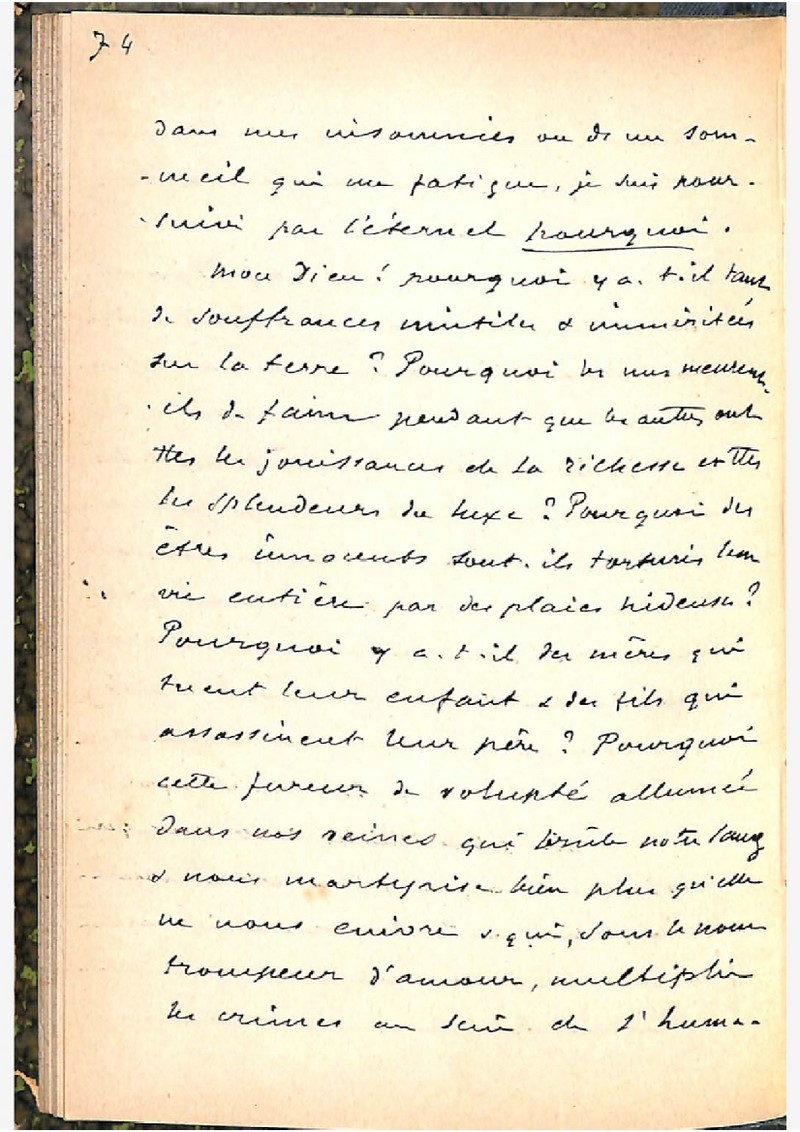 74
dans mes insomnies ou de un som-
-meil qui me fatigue, je suis pour-
-suivi par l'éternel pourquoi.
Mon Dieu! pourquoi y a-t-il tant
de souffrances inutiles & imméritées
sur la terre? Pourquoi les uns meurent-
-ils de faim pendant que les autres ont
ttes les jouissances de la richesse et ttes
les splendeurs du luxe? Pourquoi des
êtres innocents sont-ils torturés leur
vie entière par des plaies hideuses?
Pourquoi y a-t-il des mères qui
tuent leur enfant & des fils qui
assassinent leur père? Pourquoi
cette fureur de volupté allumée
dans nos veines qui brûle notre sang
& nous martyrise bien plus qu'elle
ne nous enivre & qui, sous le nom
trompeur d'amour, multiplie
les crimes au sein de l'huma-